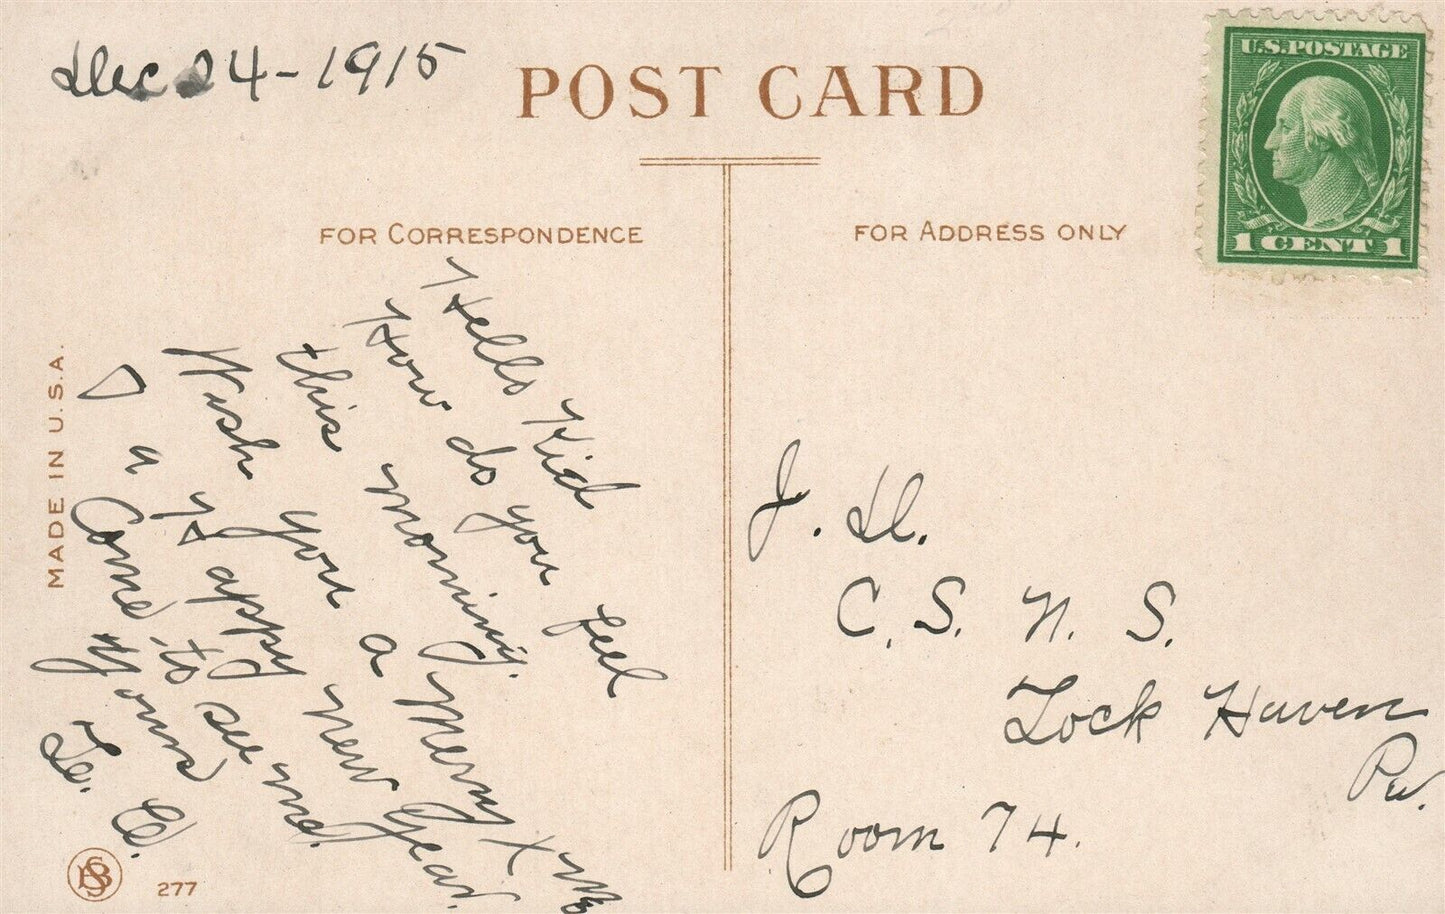 Dec 24 - 1915
POST CARD
U.S. POSTAGE
1 CENT 1
FOR CORRESPONDENCE
Hello Kid
How do you feel
this morning.
Wish you a Merry Xms
a Happy New Year.
Come to see me.
Yours
MADE IN U.S.A.
277
FOR ADDRESS ONLY
J. D.
C. S. N. S.
Lock Haven
Pa.
Room 74.